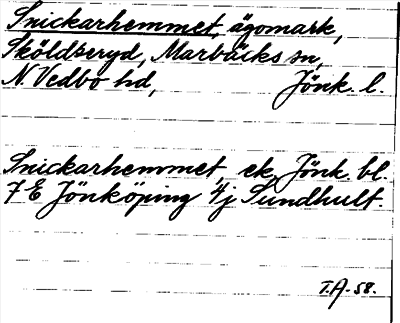 Snickarhemmet, ägomark,
Sköldseryd, Marbäcks sn,
N Vedbo hd, Jönk. l.
Snickarhemmet, ek, Jönk. bl.
7 E Jönköping 4j Sundhult.
T.A-58.